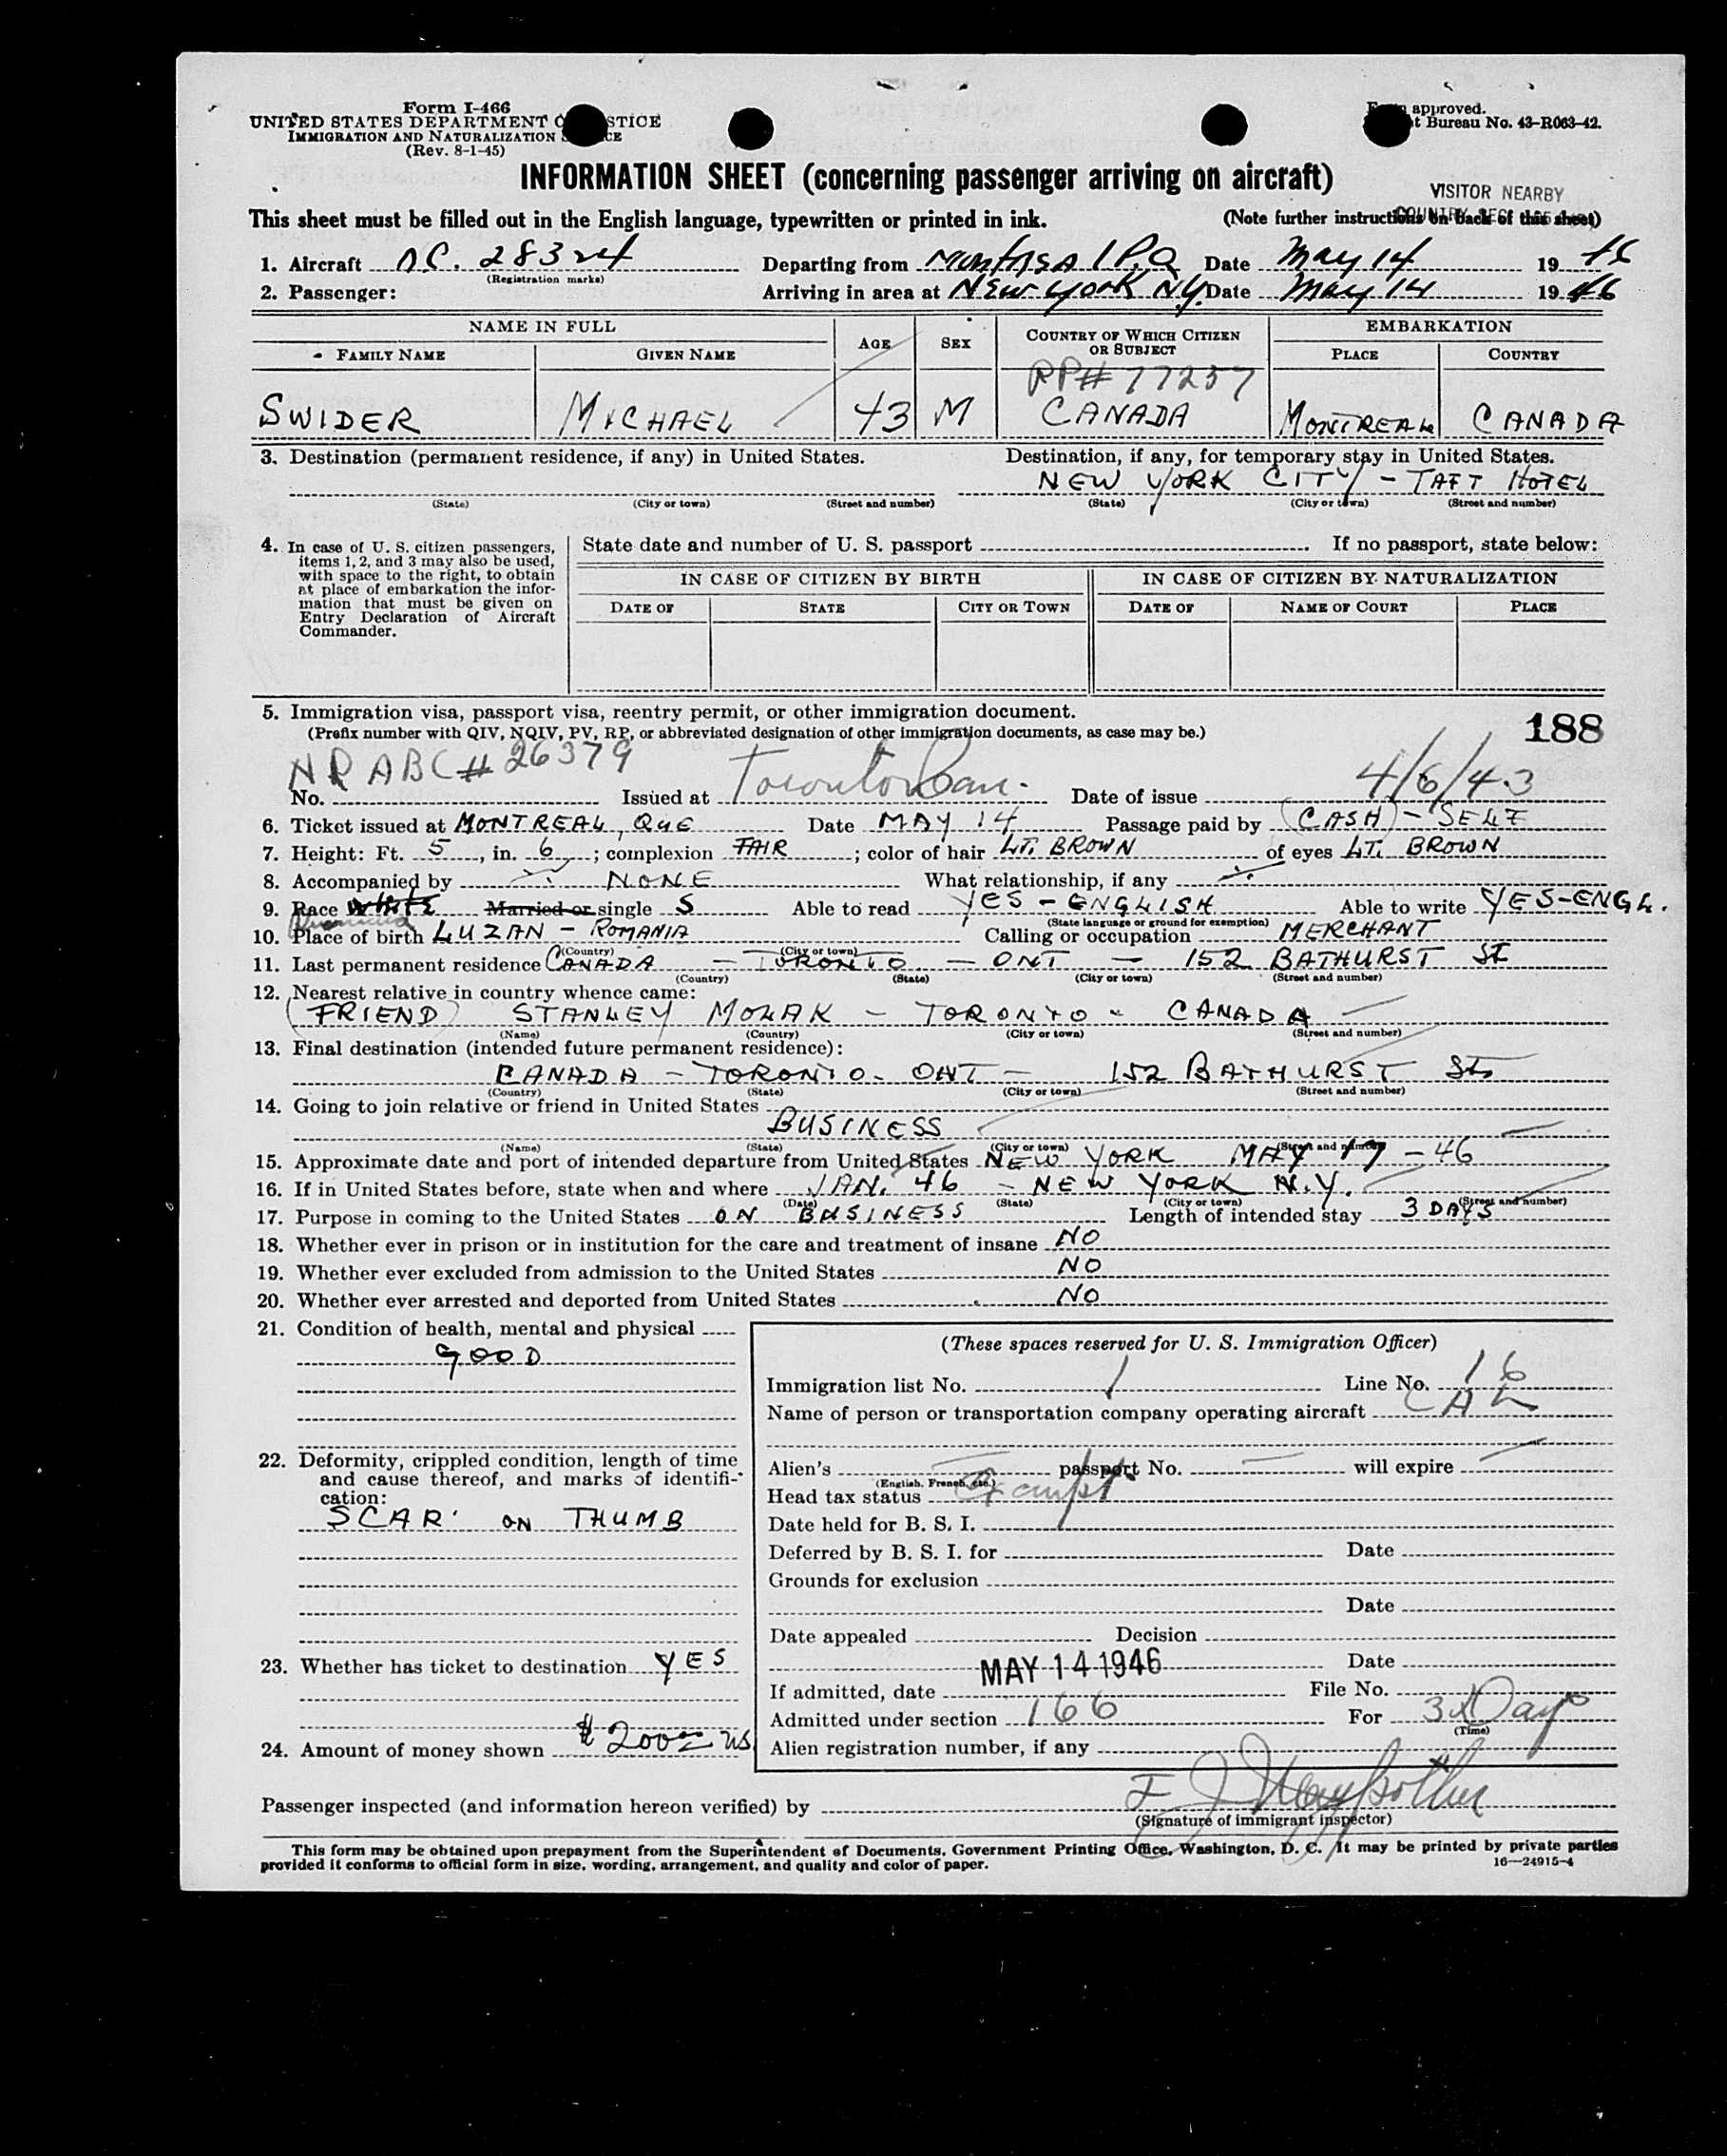 Form I-466
UNITED STATES DEPARTMENT O STICE
IMMIGRATION AND NATURALIZATION S CE
(Rev. 8-1-45)
approved.
t Bureau No. 43-R063-42.
INFORMATION SHEET (concerning passenger arriving on aircraft)
VISITOR NEARBY
This sheet must be filled out in the English language, typewritten or printed in ink. (Note further instructions on back of this sheet)
1. Aircraft 28324 Departing from Montreal P.Q Date May 14 19 46
(Registration marks)
2. Passenger: Arriving in area at New York N.Y. Date May 14 19 46
NAME IN FULL AGE SEX COUNTRY OF WHICH CITIZEN OR SUBJECT EMBARKATION
FAMILY NAME GIVEN NAME PLACE COUNTRY
RP# 77257
SWIDER MICHAEL 43 M CANADA MONTREAL CANADA
3. Destination (permanent residence, if any) in United States. Destination, if any, for temporary stay in United States.
NEW YORK CITY - TAFT HOTEL
(State) (City or town) (Street and number) (State) (City or town) (Street and number)
4. In case of U. S. citizen passengers, items 1, 2, and 3 may also be used, with space to the right, to obtain at place of embarkation the information that must be given on Entry Declaration of Aircraft Commander.
State date and number of U. S. passport If no passport, state below:
IN CASE OF CITIZEN BY BIRTH IN CASE OF CITIZEN BY NATURALIZATION
DATE OF STATE CITY OR TOWN DATE OF NAME OF COURT PLACE
5. Immigration visa, passport visa, reentry permit, or other immigration document. 188
(Prefix number with QIV, NQIV, PV, RP, or abbreviated designation of other immigration documents, as case may be.)
NRABC# 26379 Toronto Can. 4/6/43
No. Issued at Date of issue
6. Ticket issued at MONTREAL, QUE Date MAY 14 Passage paid by (CASH) - SELF
7. Height: Ft. 5, in. 6; complexion FAIR; color of hair LT. BROWN of eyes LT. BROWN
8. Accompanied by NONE What relationship, if any
9. Race White Married or single S Able to read YES - ENGLISH Able to write YES-ENGL.
(State language or ground for exemption)
10. Place of birth LUZAN - ROMANIA Calling or occupation MERCHANT
(Country) (City or town)
11. Last permanent residence CANADA - TORONTO - ONT - 152 BATHURST ST
(Country) (State) (City or town) (Street and number)
12. Nearest relative in country whence came:
(FRIEND) STANLEY MOLAK - TORONTO - CANADA
(Name) (Country) (City or town) (Street and number)
13. Final destination (intended future permanent residence):
CANADA - TORONTO - ONT - 152 BATHURST ST.
(Country) (State) (City or town) (Street and number)
14. Going to join relative or friend in United States
BUSINESS
(Name) (State) (City or town) (Street and number)
15. Approximate date and port of intended departure from United States NEW YORK MAY 17 - 46
16. If in United States before, state when and where JAN. 46 - NEW YORK N.Y.
(Date) (State) (City or town) (Street and number)
17. Purpose in coming to the United States ON BUSINESS Length of intended stay 3 DAYS
18. Whether ever in prison or in institution for the care and treatment of insane NO
19. Whether ever excluded from admission to the United States NO
20. Whether ever arrested and deported from United States NO
21. Condition of health, mental and physical
GOOD
22. Deformity, crippled condition, length of time and cause thereof, and marks of identification:
SCAR ON THUMB
23. Whether has ticket to destination YES
24. Amount of money shown $200 US
(These spaces reserved for U. S. Immigration Officer)
Immigration list No. 1 Line No. 16
Name of person or transportation company operating aircraft CAL
Alien's passport No. will expire
(English, French, etc.)
Head tax status Exempt
Date held for B. S. I.
Deferred by B. S. I. for Date
Grounds for exclusion
Date
Date appealed Decision
Date
MAY 14 1946
If admitted, date File No.
Admitted under section 166 For 3 Days
(Time)
Alien registration number, if any
Passenger inspected (and information hereon verified) by
(Signature of immigrant inspector)
This form may be obtained upon prepayment from the Superintendent of Documents, Government Printing Office, Washington, D. C. It may be printed by private parties
provided it conforms to official form in size, wording, arrangement, and quality and color of paper. 16—24915-4